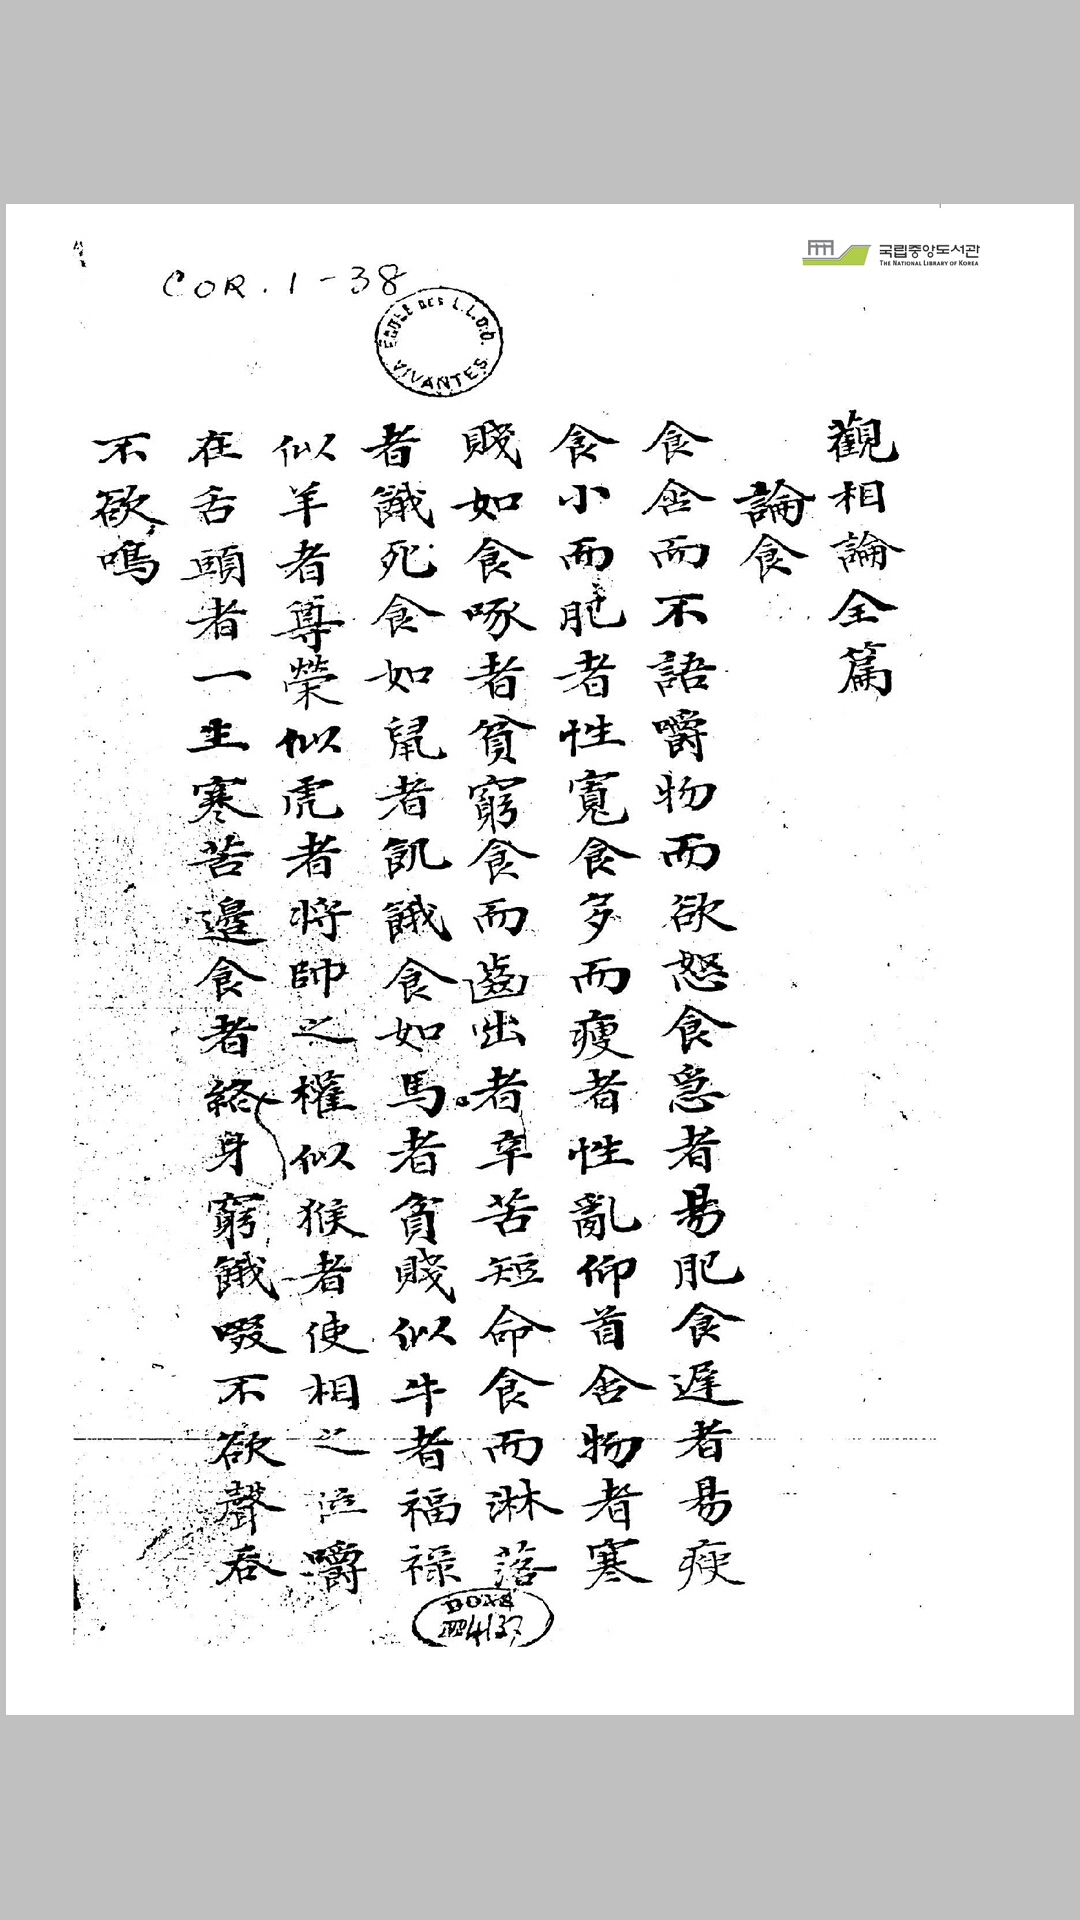 국립중앙도서관
THE NATIONAL LIBRARY OF KOREA
COR. 1-38
ÉCOLE DES L.L.O.O. VIVANTES
觀相論全篇
論食
食含而不語嚼物而欲怒食急者易肥食遲者易瘦
食小而肥者性寬食多而瘦者性亂仰首含物者寒
賤如食啄者貧窮食而齒出者辛苦短命食而淋落
者餓死食如鼠者飢餓食如馬者貧賤似牛者福祿
似羊者尊榮似虎者將帥之權似猴者使相之位嚼
在舌頭者一生寒苦邊食者終身窮餓啜不欲聲呑
不欲鳴
4137